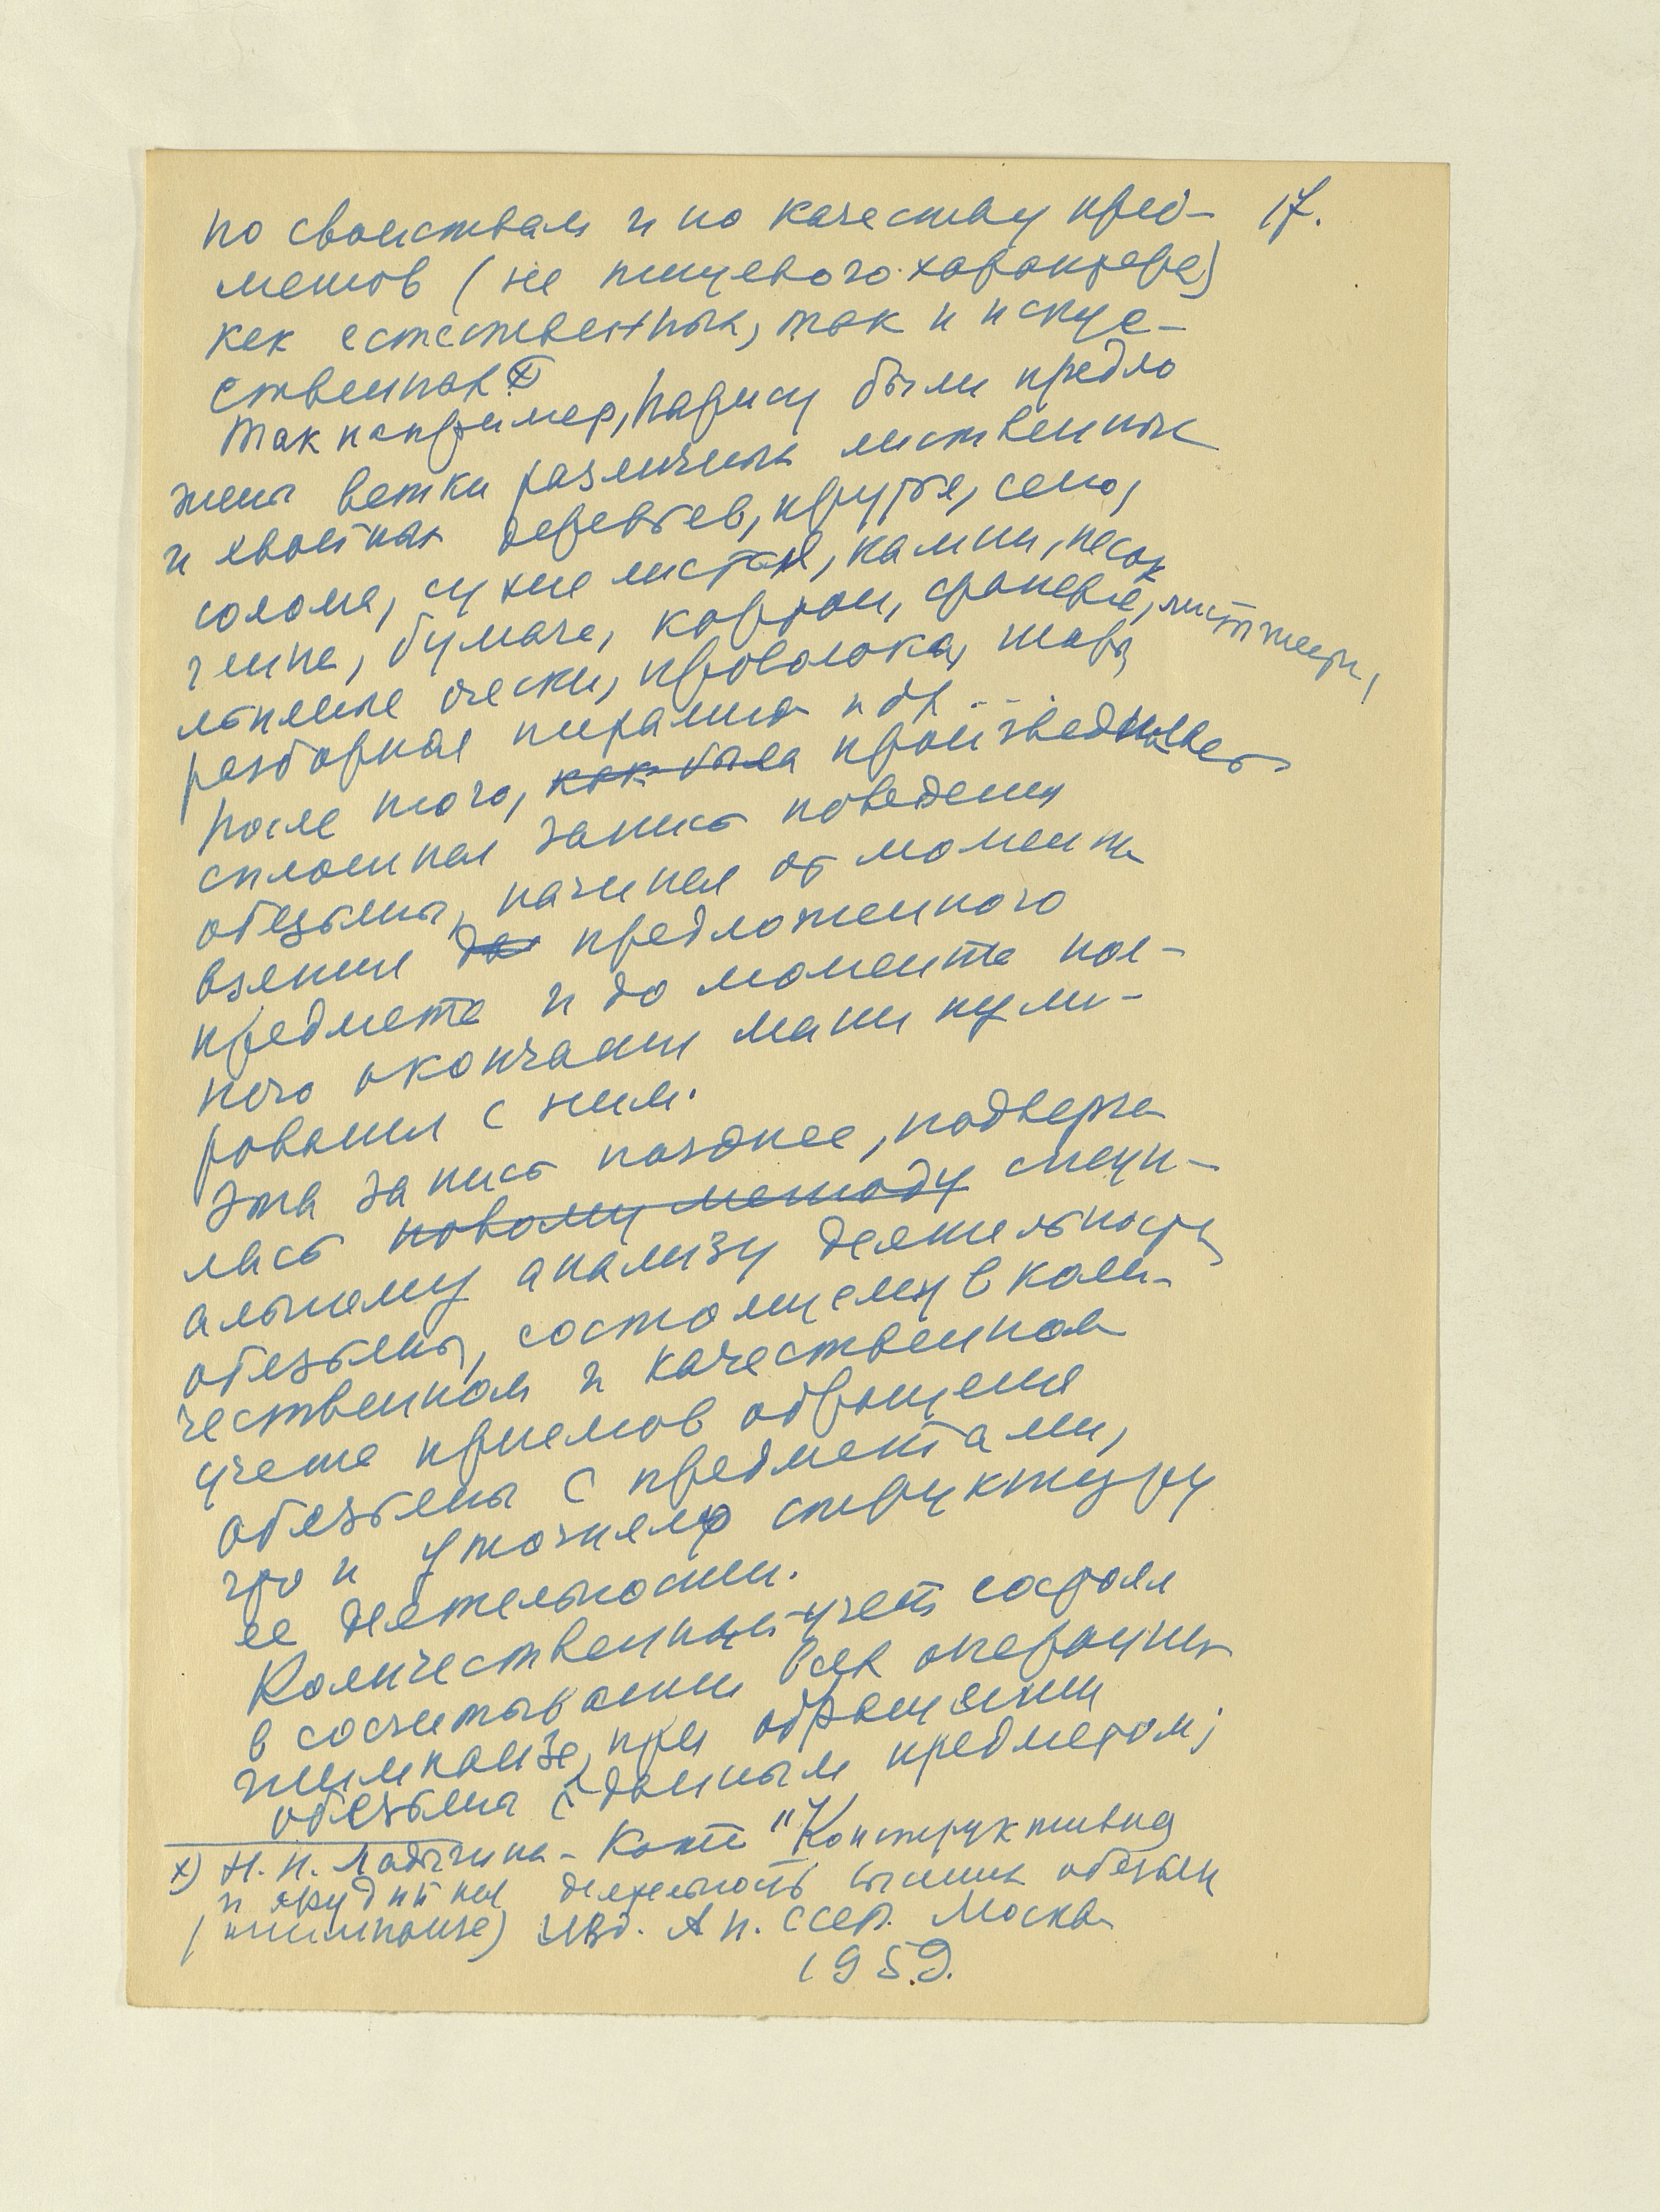 по свойствам и по качеству пред- 17.
метов (не пищевого характера)
как естественных, так и искус-
ственных x)
Так например, Парису были предло
жены ветки различных лиственных
и хвойных деревьев, прутья, сено,
солома, сухие листья, камни, песок
глина, бумага, картон, фанера, лист жести,
льняные очески, проволока, шары
разборная пирамида и др...
После того, как была производилась
сплошная запись поведения
обезьяны, начиная от момента
взятия до предложенного
предмета и до момента пол-
ного окончания манипули-
рования с ним.
Эта запись позднее, подверга
лась новому методу специ-
альному анализу деятельности
обезьяны, состоящему в коли-
чественном и качественном
учете приемов обращения
обезьяны с предметами,
что и уточняло структуру
ее деятельности.
Количественный учет состоял
в сосчитывании всех операций
шимпанзе, при обращении
обезьяны с данным предметом;
x) Н. Н. Ладыгина-Котс "Конструктивная
и орудийная деятельность высших обезьян
(шимпанзе) Изд. А Н. СССР. Москва
1959.